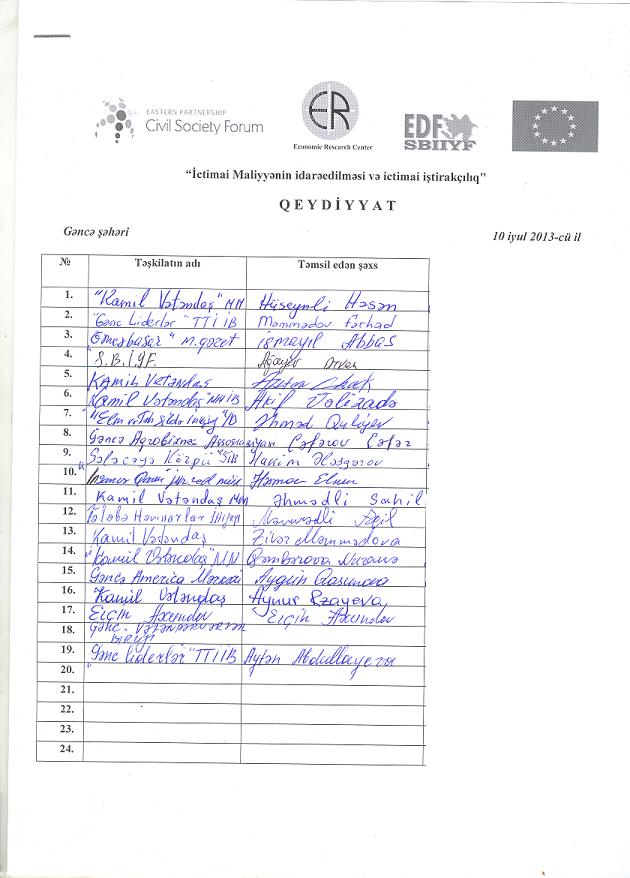 EASTERN PARTNERSHIP
Civil Society Forum
ER
Economic Research Center
EDF
SBIIYF
“İctimai Maliyyənin idarəedilməsi və ictimai iştirakçılıq"
QEYDİYYAT
Gəncə şəhəri
10 iyul 2013-cü il
№ Təşkilatın adı Təmsil edən şəxs
1. "Kamil Vətəndaş" MM Hüseynli Həsən
2. "Gənc Liderlər" TTİİB Məmmədov Fərhad
3. m. qəzet İsmayıl Abbas
4. S.B.İ.Y.F. Ağayev
5. Kamil Vətəndaş
6. Kamil Vətəndaş Akif Vəlizadə
7. Əhməd Quliyev
8. Gəncə Aqrobiznes Assosiasiyası Cəfərov Cəfər
9. Gələcəyə Körpü Hakim Ələsgərov
10. Elnur
11. Kamil Vətəndaş MM Əhmədli Sahil
12. Tələbə Məmmədli Aqil
13. Kamil Vətəndaş Məmmədova
14. "Kamil Vətəndaş" MM Qəmbərova
15. Gəncə America Mərkəzi Aygün Qasımova
16. Kamil Vətəndaş Aynur Rzayeva
17. Elçin Axundov Elçin Axundov
18. Gənc Vətənpərvərlər
Birliyi
19. "Gənc liderlər" TTİİB Aytən Abdullayeva
20.
21.
22.
23.
24.